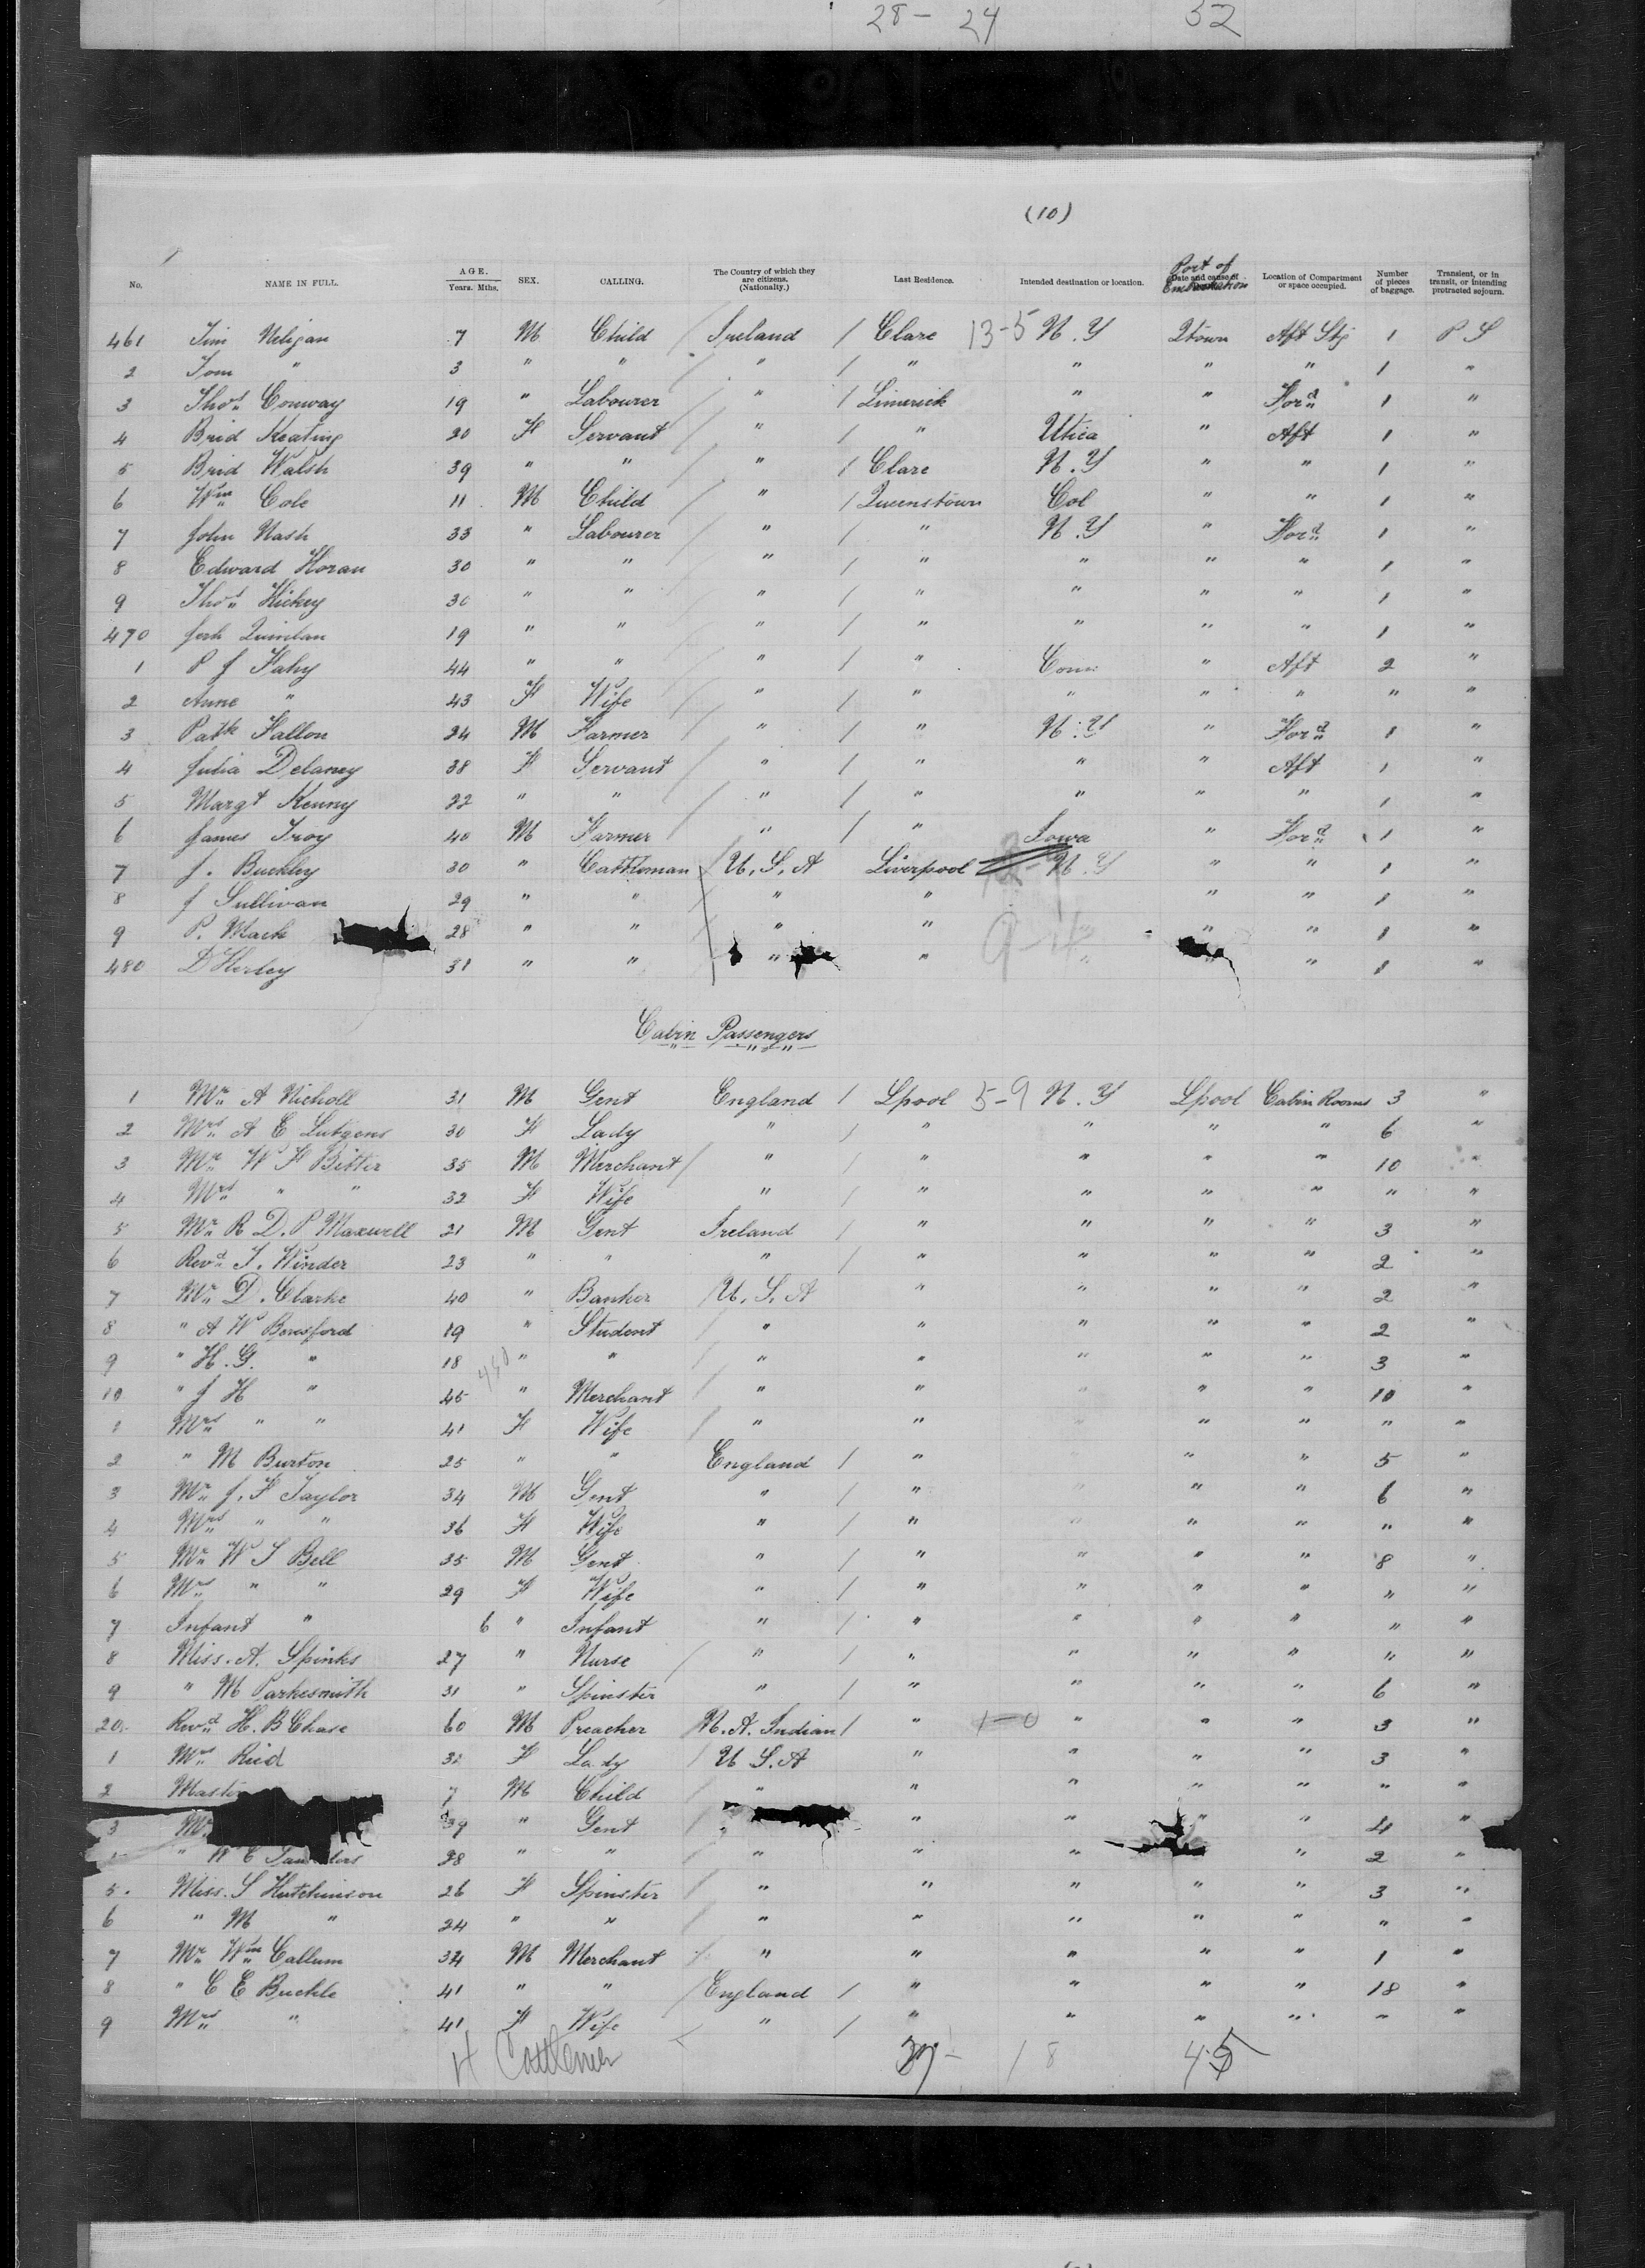 28 - 24 52
(10)
No. NAME IN FULL. AGE. Years. Mths. SEX. CALLING. The Country of which they are citizens. (Nationality.) Last Residence. Intended destination or location. Port of Embarkation Date and cause of Location of Compartment or space occupied. Number of pieces of baggage. Transient, or in transit, or intending protracted sojourn.
461 Jim Neligan 7 M Child / Ireland / Clare 13-5 N.Y Qtown Aft Stg 1 P S
2 Tom " 3 " " / " / " " " " 1 "
3 Thos Conway 19 " Labourer " / Limerick " " Ford 1 "
4 Brid Keating 20 F Servant / " / " Utica " Aft 1 "
5 Brid Walsh 39 " " / " / Clare N.Y " " 1 "
6 Wm Cole 11 M Child / " / Queenstown Col " " 1 "
7 John Nash 33 " Labourer / " / " N.Y " Ford 1 "
8 Edward Horan 30 " " / " / " " " " 1 "
9 Thos Hickey 30 " " / " / " " " " 1 "
470 Josh Quinlan 19 " " / " / " " " " 1 "
1 P J Fahy 44 " " / " / " Conn " Aft 2 "
2 Anne " 43 F Wife / " / " " " " " "
3 Patk Fallon 24 M Farmer / " / " N.Y " Ford 1 "
4 Julia Delaney 38 F Servant / " / " " " Aft 1 "
5 Margt Kenny 22 " " / " / " " " " 1 "
6 James Troy 40 M Farmer / " / " Iowa " Ford 1 "
7 J. Buckley 30 " Cattleman / U.S.A Liverpool N.Y " " 1 "
8 J Sullivan 29 " " / " " " " 1 "
9 P. Mack 28 " " / " " " " 1 "
480 D Herley 31 " " / " " 9-4 " " " 1 "
Cabin Passengers
1 Mr A Nicholl 31 M Gent England / Lpool 5-9 N.Y Lpool Cabin Rooms 3 "
2 Mrs A E Lutgens 30 F Lady " / " " " " 6 "
3 Mr W F Bitter 35 M Merchant / " / " " " " 10 "
4 Mrs " " 32 F Wife " / " " " " " "
5 Mr R D. P Maxwell 21 M Gent Ireland / " " " " 3 "
6 Revd T. Winder 23 " " " / " " " " 2 "
7 Mr D. Clarke 40 " Banker / U.S.A " " " " 2 "
8 " A W Beresford 19 " Student / " " " " " 2 "
9 " H.G. " 18 " " / " " " " " 3 "
10 " J H " 45 " Merchant / " " " " " 10 "
1 Mrs " " 41 F Wife / " " " " " " "
2 " M Burton 25 " " England / " " " " 5 "
3 Mr J. F Taylor 34 M Gent " / " " " " 6 "
4 Mrs " " 36 F Wife " / " " " " " "
5 Mr W S Bell 35 M Gent " / " " " " 8 "
6 Mrs " " 29 F Wife " / " " " " " "
7 Infant " 6 " Infant " / " " " " " "
8 Miss. A. Spinks 27 " Nurse / " / " " " " " "
9 " M Parkesmith 31 " Spinster " / " " " " 6 "
20 Revd H. B Chase 60 M Preacher N.A. Indian / " 1-0 " " " 3 "
1 Mrs Reid 32 F Lady / U S.A " " " " 3 "
2 Master 7 M Child / " " " " " " "
3 Mr 39 " Gent / " " " " " 4 "
" W E 28 " " / " " " " " 2 "
5. Miss. S Hutchinson 26 F Spinster / " " " " " 3 "
6 " M " 24 " " / " " " " " " "
7 Mr Wm Callum 34 M Merchant / " " " " " 1 "
8 " C E Buckle 41 " " / England / " " " " 18 "
9 Mrs " 41 F Wife " / " " " " " "
4 Cattlemen 37 - 18 45